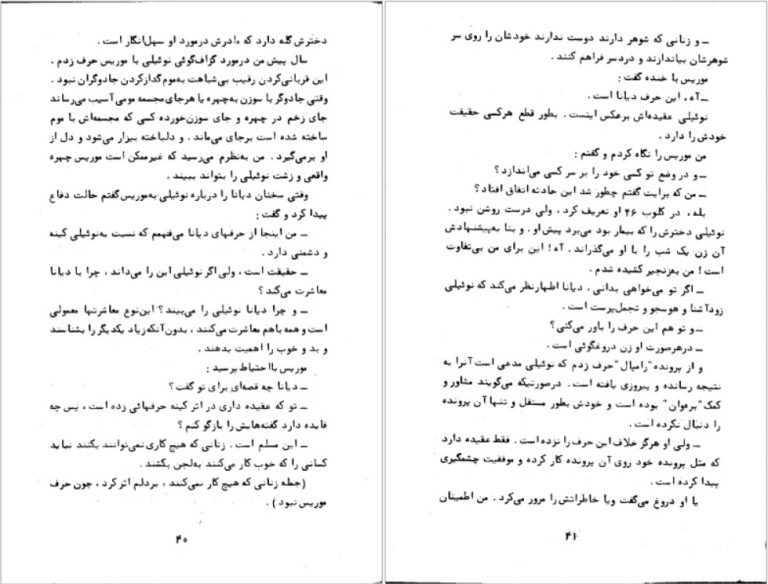 دخترش گله دارد که مادرش درمورد او سهل‌انگار است .
سال پیش من درمورد گزاف‌گوئی نوئیلی با موریس حرف زدم .
این قربانی‌کردن رقیب بی‌شباهت به‌موم گداز‌کردن جادوگران نبود .
وقتی جادوگر با سوزن به‌چهره یا هرجای‌مجسمه مومی آسیب می‌رساند
جای زخم در چهره و جای سوزن‌خورده کسی که مجسمه‌اش با موم
ساخته شده است برجای می‌ماند . و دلباخته بیزار می‌شود و دل از
او برمی‌گیرد . من به‌نظرم می‌رسید که غیرممکن است موریس چهره
واقعی و زشت نوئیلی را بتواند ببیند .
وقتی سخنان دیانا را درباره نوئیلی به‌موریس‌گفتم حالت دفاع
پیدا کرد و گفت :
ـ من اینجا از حرفهای دیانا می‌فهمم که نسبت به‌نوئیلی کینه
و دشمنی دارد .
ـ حقیقت است ، ولی اگر نوئیلی این را می‌داند ، چرا با دیانا
معاشرت می‌کند ؟
ـ و چرا دیانا نوئیلی را می‌بیند ؟ این‌نوع معاشرتها معمولی
است و همه باهم معاشرت می‌کنند ، بدون‌آنکه زیاد یکدیگر را بشناسند
و بد و خوب را اهمیت بدهند .
موریس با احتیاط پرسید :
ـ دیانا چه قصه‌ای برای تو گفت ؟
ـ تو که عقیده داری در اثر کینه حرفهائی زده است ، پس چه
فایده دارد گفته‌هایش را بازگو کنم ؟
ـ این مسلم است . زنانی که هیچ کاری نمی‌توانند بکنند نباید
کسانی را که خوب کار می‌کنند به‌لجن بکشند .
(جمله زنانی که هیچ کار نمی‌کنند ، بر‌دلم اثر کرد ، چون حرف
موریس نبود ) .
۴۰
ـ و زنانی که شوهر دارند دوست ندارند خودشان را روی سر
شوهرشان بیاندازند و دردسر فراهم کنند .
موریس با خنده گفت :
ـ آه ، این حرف دیانا است .
نوئیلی عقیده‌اش برعکس اینست . بطور قطع هرکسی حقیقت
خودش را دارد .
من موریس را نگاه کردم و گفتم :
ـ و در وضع تو کسی خود را بر سر کسی می‌اندازد ؟
ـ من که برایت گفتم چطور شد این حادثه اتفاق افتاد ؟
بله ، در کلوب ۴۶ او تعریف کرد ، ولی درست روشن نبود .
نوئیلی دخترش را که بیمار بود می‌برد پیش او . و بنا به‌پیشنهادش
آن زن یک شب را با او می‌گذراند . آه ! این برای من بی‌تفاوت
است ! من به‌زنجیر کشیده شدم .
ـ اگر تو می‌خواهی بدانی ، دیانا اظهارنظر می‌کند که نوئیلی
زودآشنا و هوسجو و تجمل‌پرست است .
ـ و تو هم این حرف را باور می‌کنی ؟
ـ درهرصورت او زن دروغگوئی است .
و از پرونده "رامپال" حرف زدم که نوئیلی مدعی است آنرا به
نتیجه رسانده و پیروزی یافته است . درصورتیکه می‌گویند مشاور و
کمک "بره‌وان" بوده است و خودش بطور مستقل و تنها آن پرونده
را دنبال نکرده است .
ـ ولی او هرگز خلاف این حرف را نزده است . فقط عقیده دارد
که مثل پرونده خود روی آن پرونده کار کرده و موفقیت چشمگیری
پیدا کرده است .
یا او دروغ می‌گفت ویا خاطراتش را مرور می‌کرد . من اطمینان
۴۱